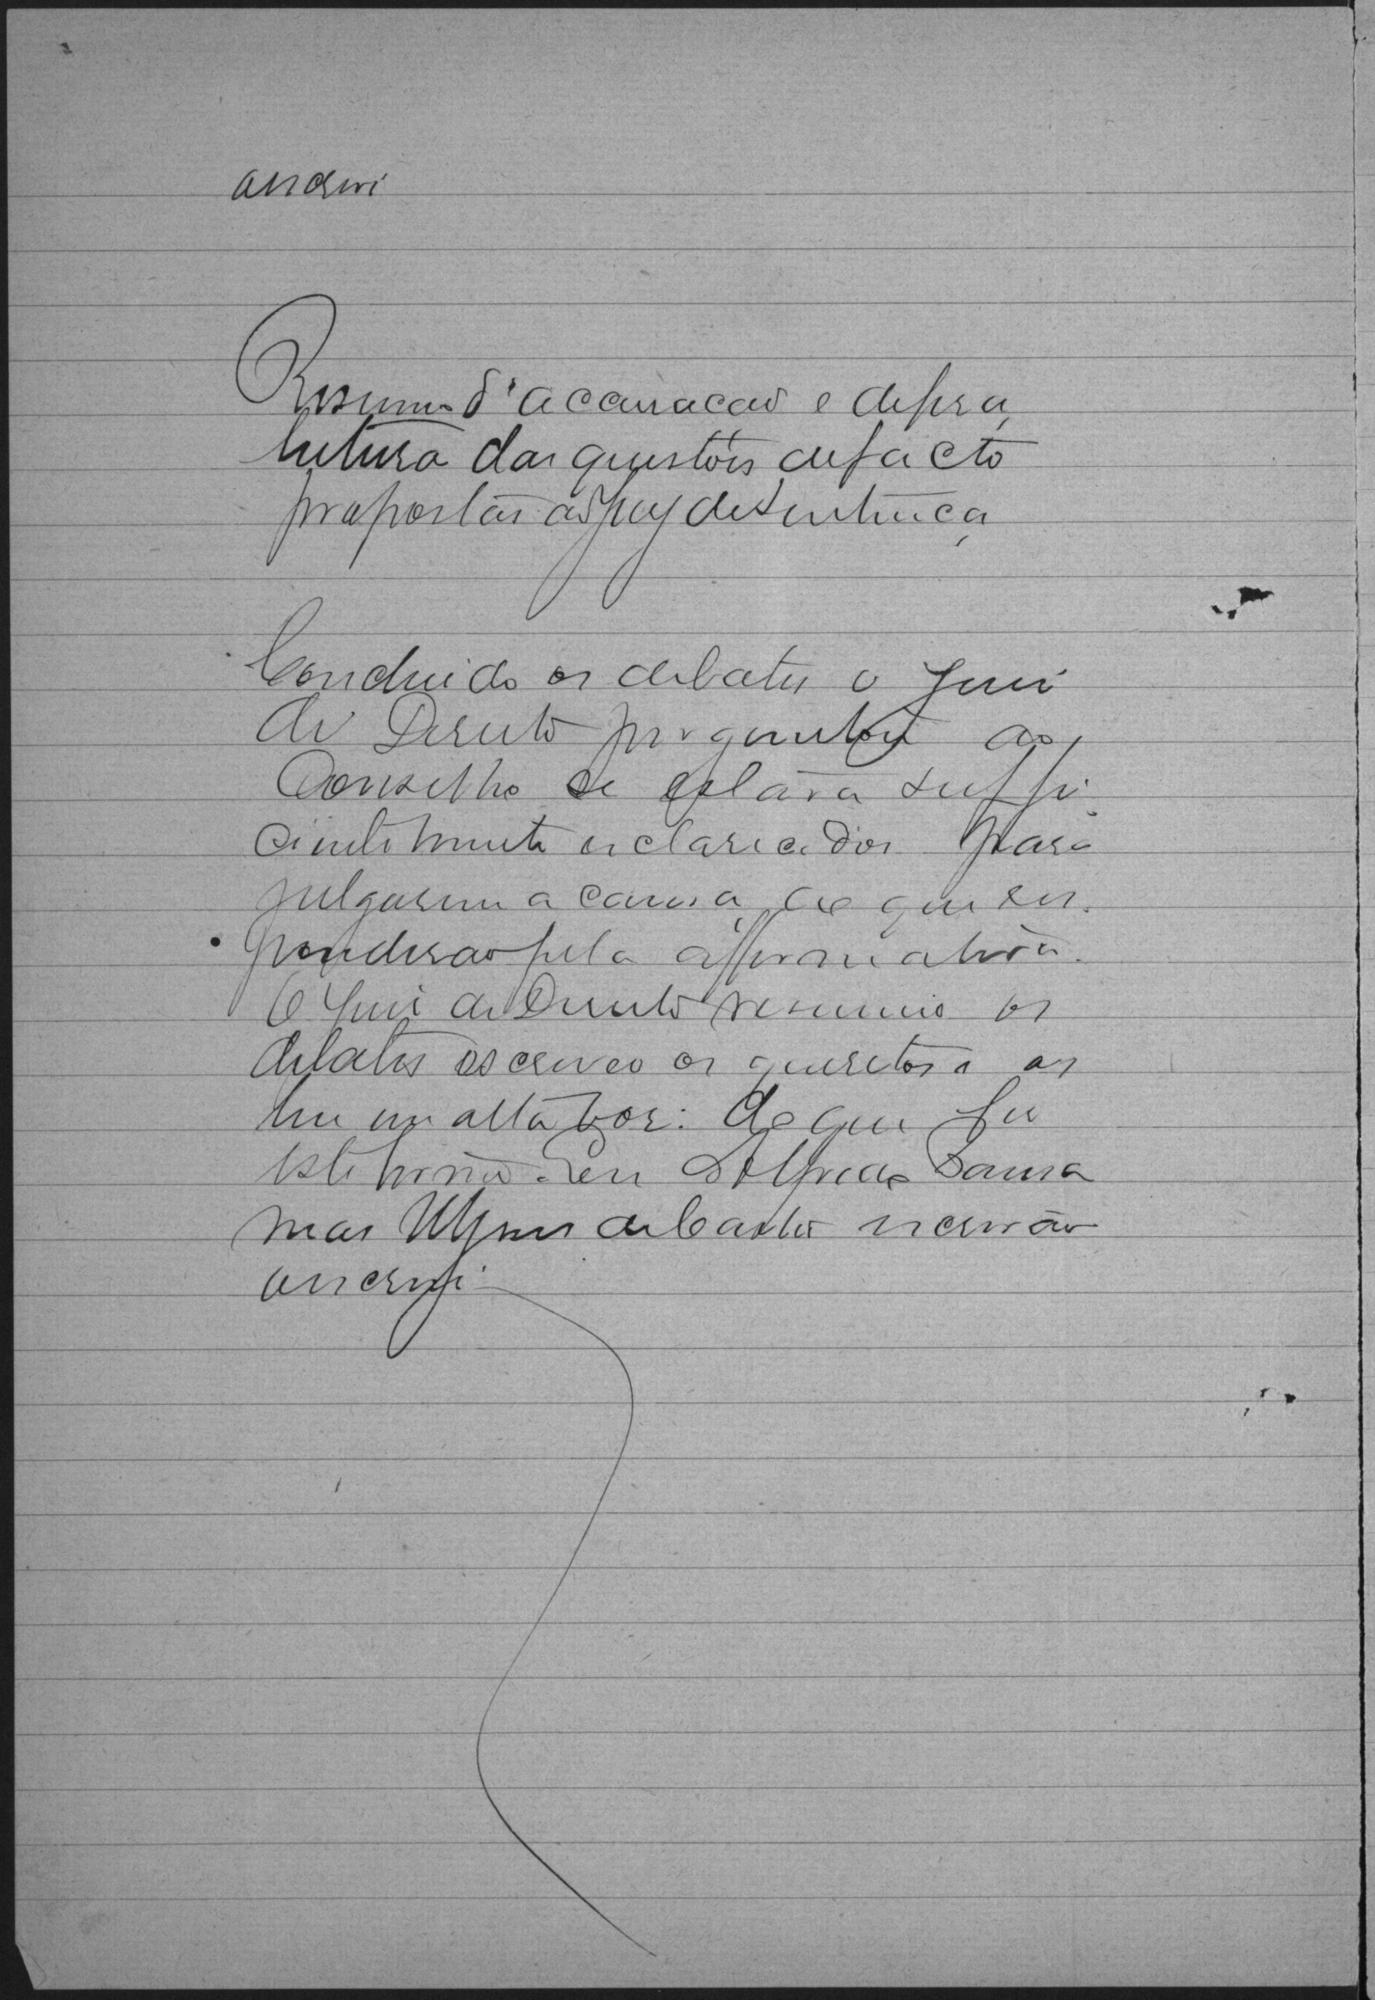 escrevi
Resumo d'accusacao e defesa,
leitura das questões de facto
propostas ao Jury de Sentença
Concluido os debates o Juiz
de Direito perguntou ao
Conselho se estava suffi
cientemente esclarecidos para
julgarem a causa, ao que res
ponderao pela affirmativa.
O Juiz de Direito resumio os
debates escreveo os quesitos e os
leu em alta voz: do que fis
este termo. Eu Sousa
escrivão
escrevi.